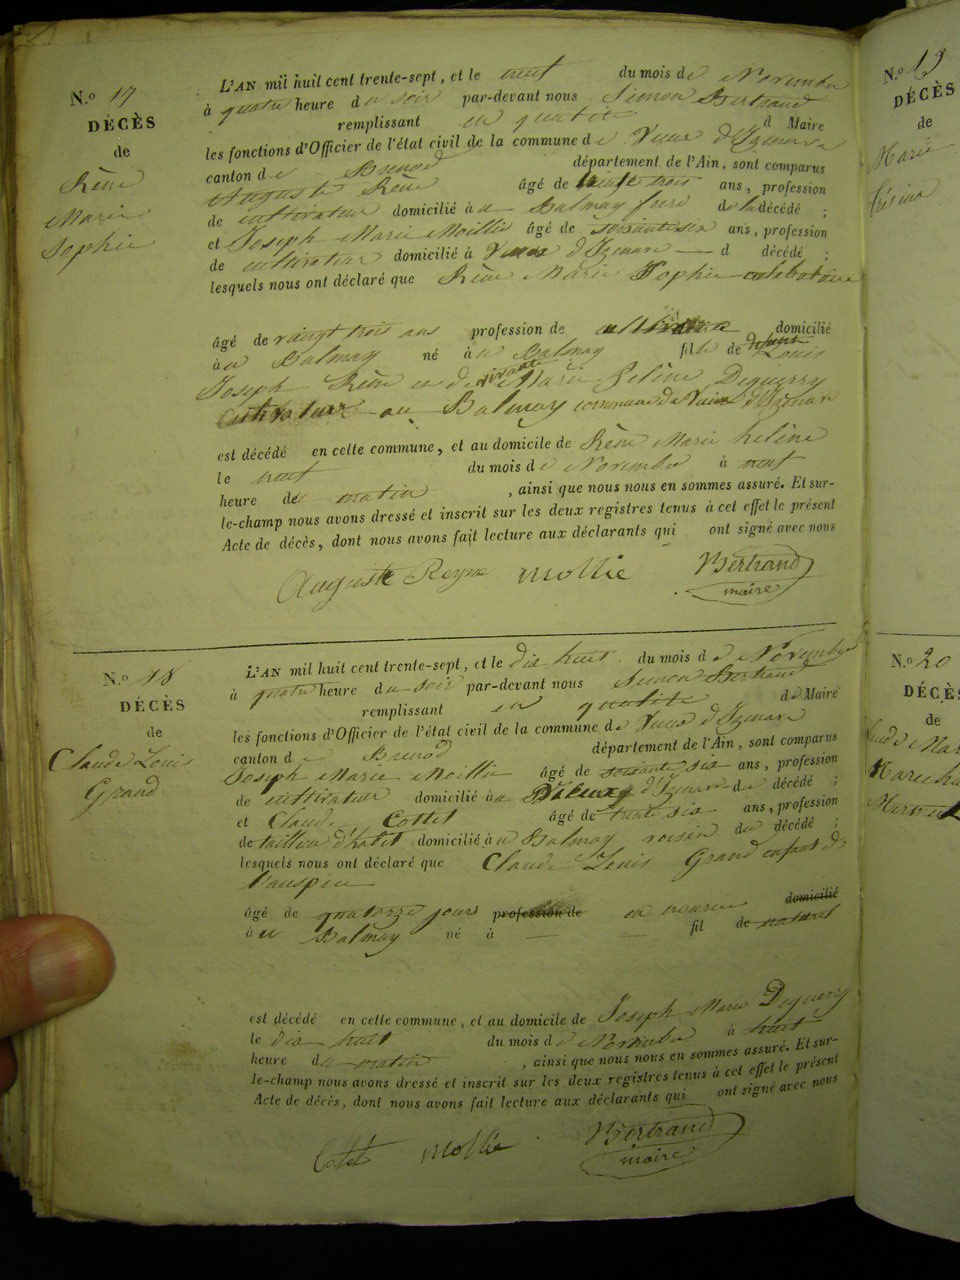 N.º 17
DÉCÈS
de
Rène
Marie
Sophie
L'AN mil huit cent trente-sept, et le neuf du mois de Novembre
à quatre heure du soir par-devant nous Simon Bertrand
remplissant en qualité d Maire
les fonctions d'Officier de l'état civil de la commune de Vieux d'Izenave
canton de Brenod département de l'Ain, sont comparus
Auguste Rène âgé de trois ans, profession
de cultivateur domicilié à u Balmay frère de la décédé ;
et Joseph Marie Moillie âgé de soixante six ans, profession
de cultivateur domicilié à Vieux d'Izenave d décédé ;
lesquels nous ont déclaré que Rène Marie Sophie celibataire
âgé de vaingt trois ans profession de domicilié
à u Balmay né à u Balmay fille de defunt Louis
Joseph Rène et de vivante Marie Helène Deguerry
cultivateur au Balmay commune de Vieux d'Izenave
est décédé en cette commune, et au domicile de Rène Marie helène
le neuf du mois de Novembre à neuf
heure de matin , ainsi que nous nous en sommes assuré. Et sur-
le-champ nous avons dressé et inscrit sur les deux registres tenus à cet effet le présent
Acte de décès, dont nous avons fait lecture aux déclarants qui ont signé avec nous
Auguste Reyne Mollie Bertrand
maire
N.º 18
DÉCÈS
de
Claude Louis
Grand
L'AN mil huit cent trente-sept, et le dix huit du mois de Novembre
à quatre heure du soir par-devant nous Simon Bertrand
remplissant en qualité de Maire
les fonctions d'Officier de l'état civil de la commune de Vieux d'Izenave
canton d Brenod département de l'Ain, sont comparus
Joseph Marie Moillie âgé de soixante six ans, profession
de cultivateur domicilié à d'Izenave du décédé ;
et Claude Cottet âgé de trente six ans, profession
de tailleur d'habit domicilié à u Balmay voisin du décédé ;
lesquels nous ont déclaré que Claude Louis Grand enfant de
l'auspice
âgé de quatorze jours profession de en nourice domicilié
à u Balmay né à fil de naturel
est décédé en cette commune, et au domicile de Joseph Marie Deguerry
le dix huit du mois de Novembre à huit
heure du matin , ainsi que nous nous en sommes assuré. Et sur-
le-champ nous avons dressé et inscrit sur les deux registres tenus à cet effet le présent
Acte de décès, dont nous avons fait lecture aux déclarants qui ont signé avec nous
Cottet Mollie Bertrand
maire
N.º 19
DÉCÈS
de
Marie
N.º 20
DÉCÈS
de